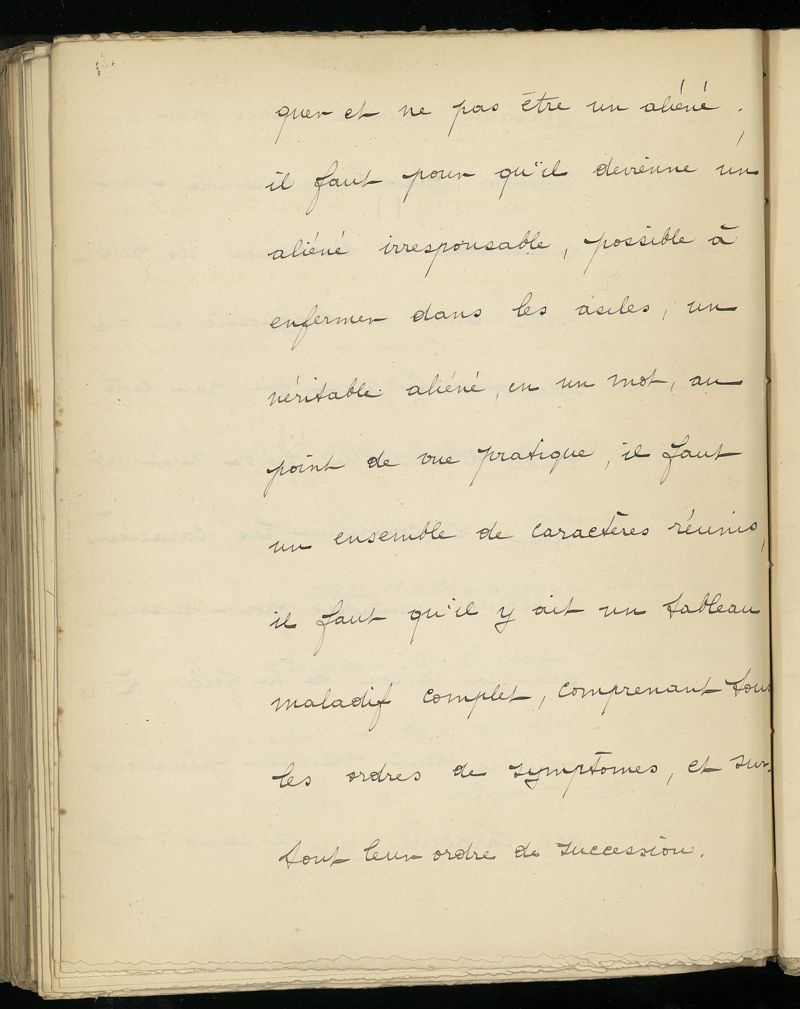 quer et ne pas être un aliéné ;
il faut pour qu'il devienne un
aliéné irresponsable, possible à
enfermer dans les asiles, un
véritable aliéné, en un mot, au
point de vue pratique, il faut
un ensemble de caractères réunis,
il faut qu'il y ait un tableau
maladif complet, comprenant tous
les ordres de symptômes, et sur-
tout leur ordre de succession.